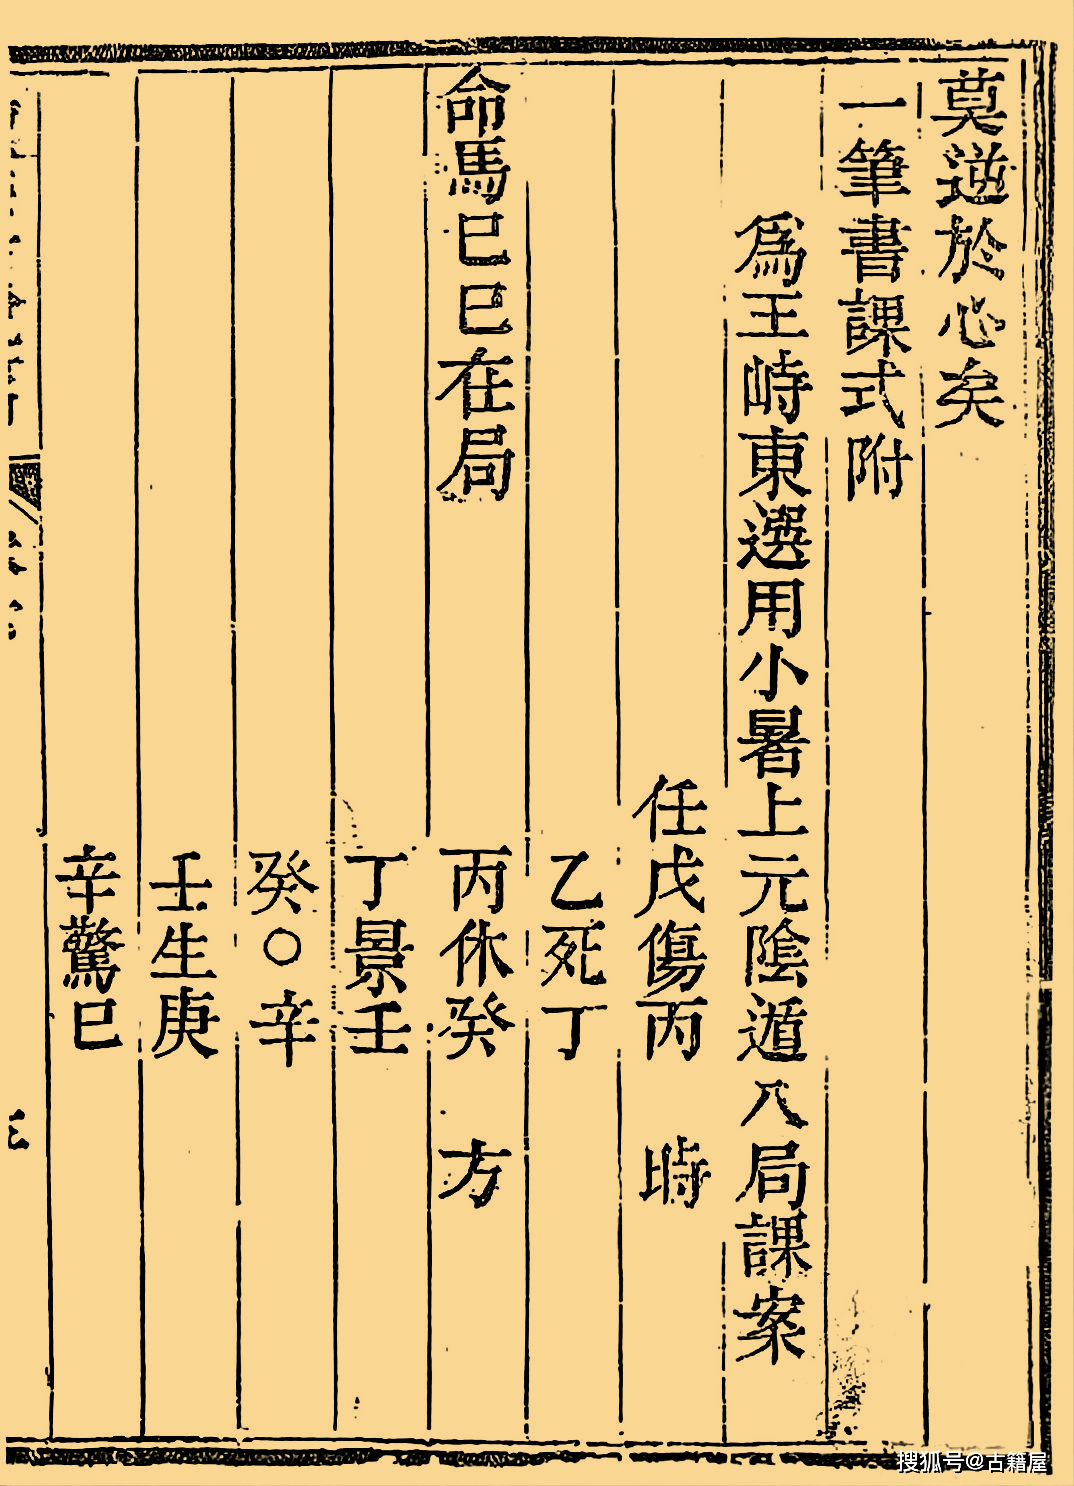 莫逆於心矣
一筆書課式附
爲王峙東選用小暑上元陰遁八局課案
任戊傷丙　時
乙死丁
命馬巳巳在局　丙休癸　方
丁景壬
癸○辛
壬生庚
辛驚巳
搜狐号@古籍屋